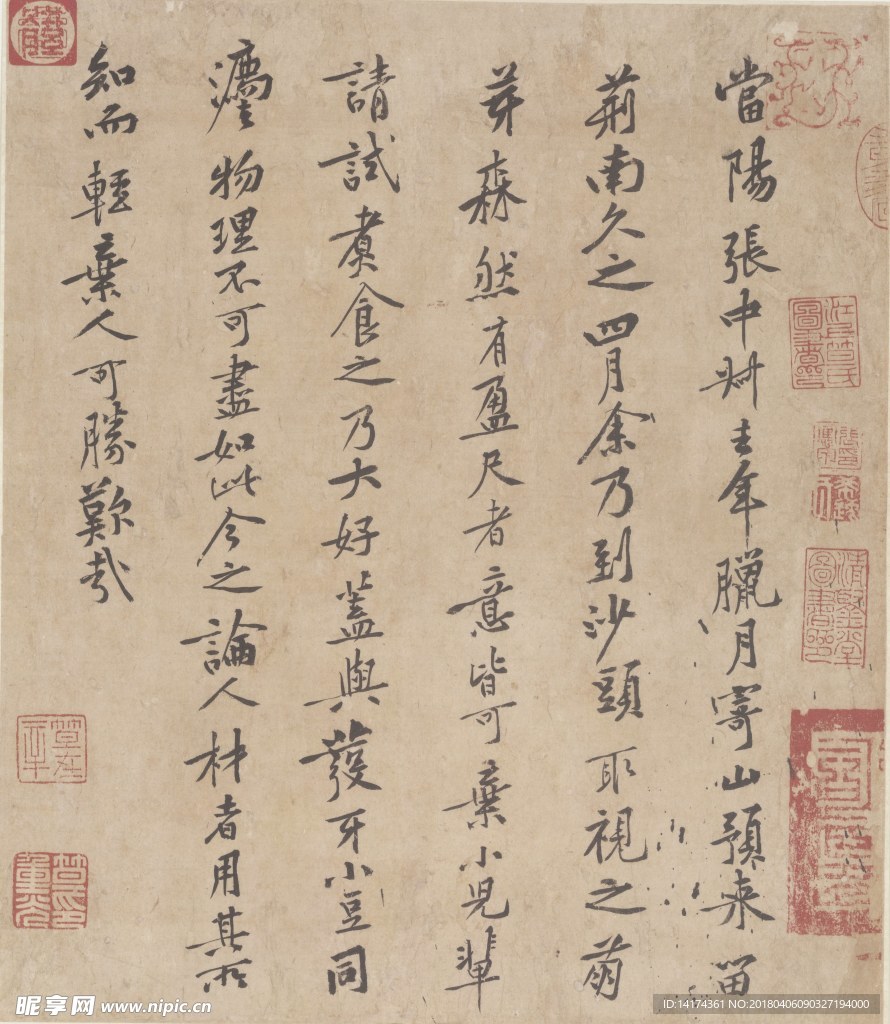 當陽張中叔去年臘月寄山預来留
荊南久之四月余乃到沙頭取視之萌
芽森然有盈尺者意皆可棄小児輩
請試煑食之乃大好蓋與發牙小豆同
灋物理不可盡如此今之論人材者用其所
知而輕棄人可勝歎哉
昵享网 www.nipic.cn
ID:14174361 NO:20180406090327194000